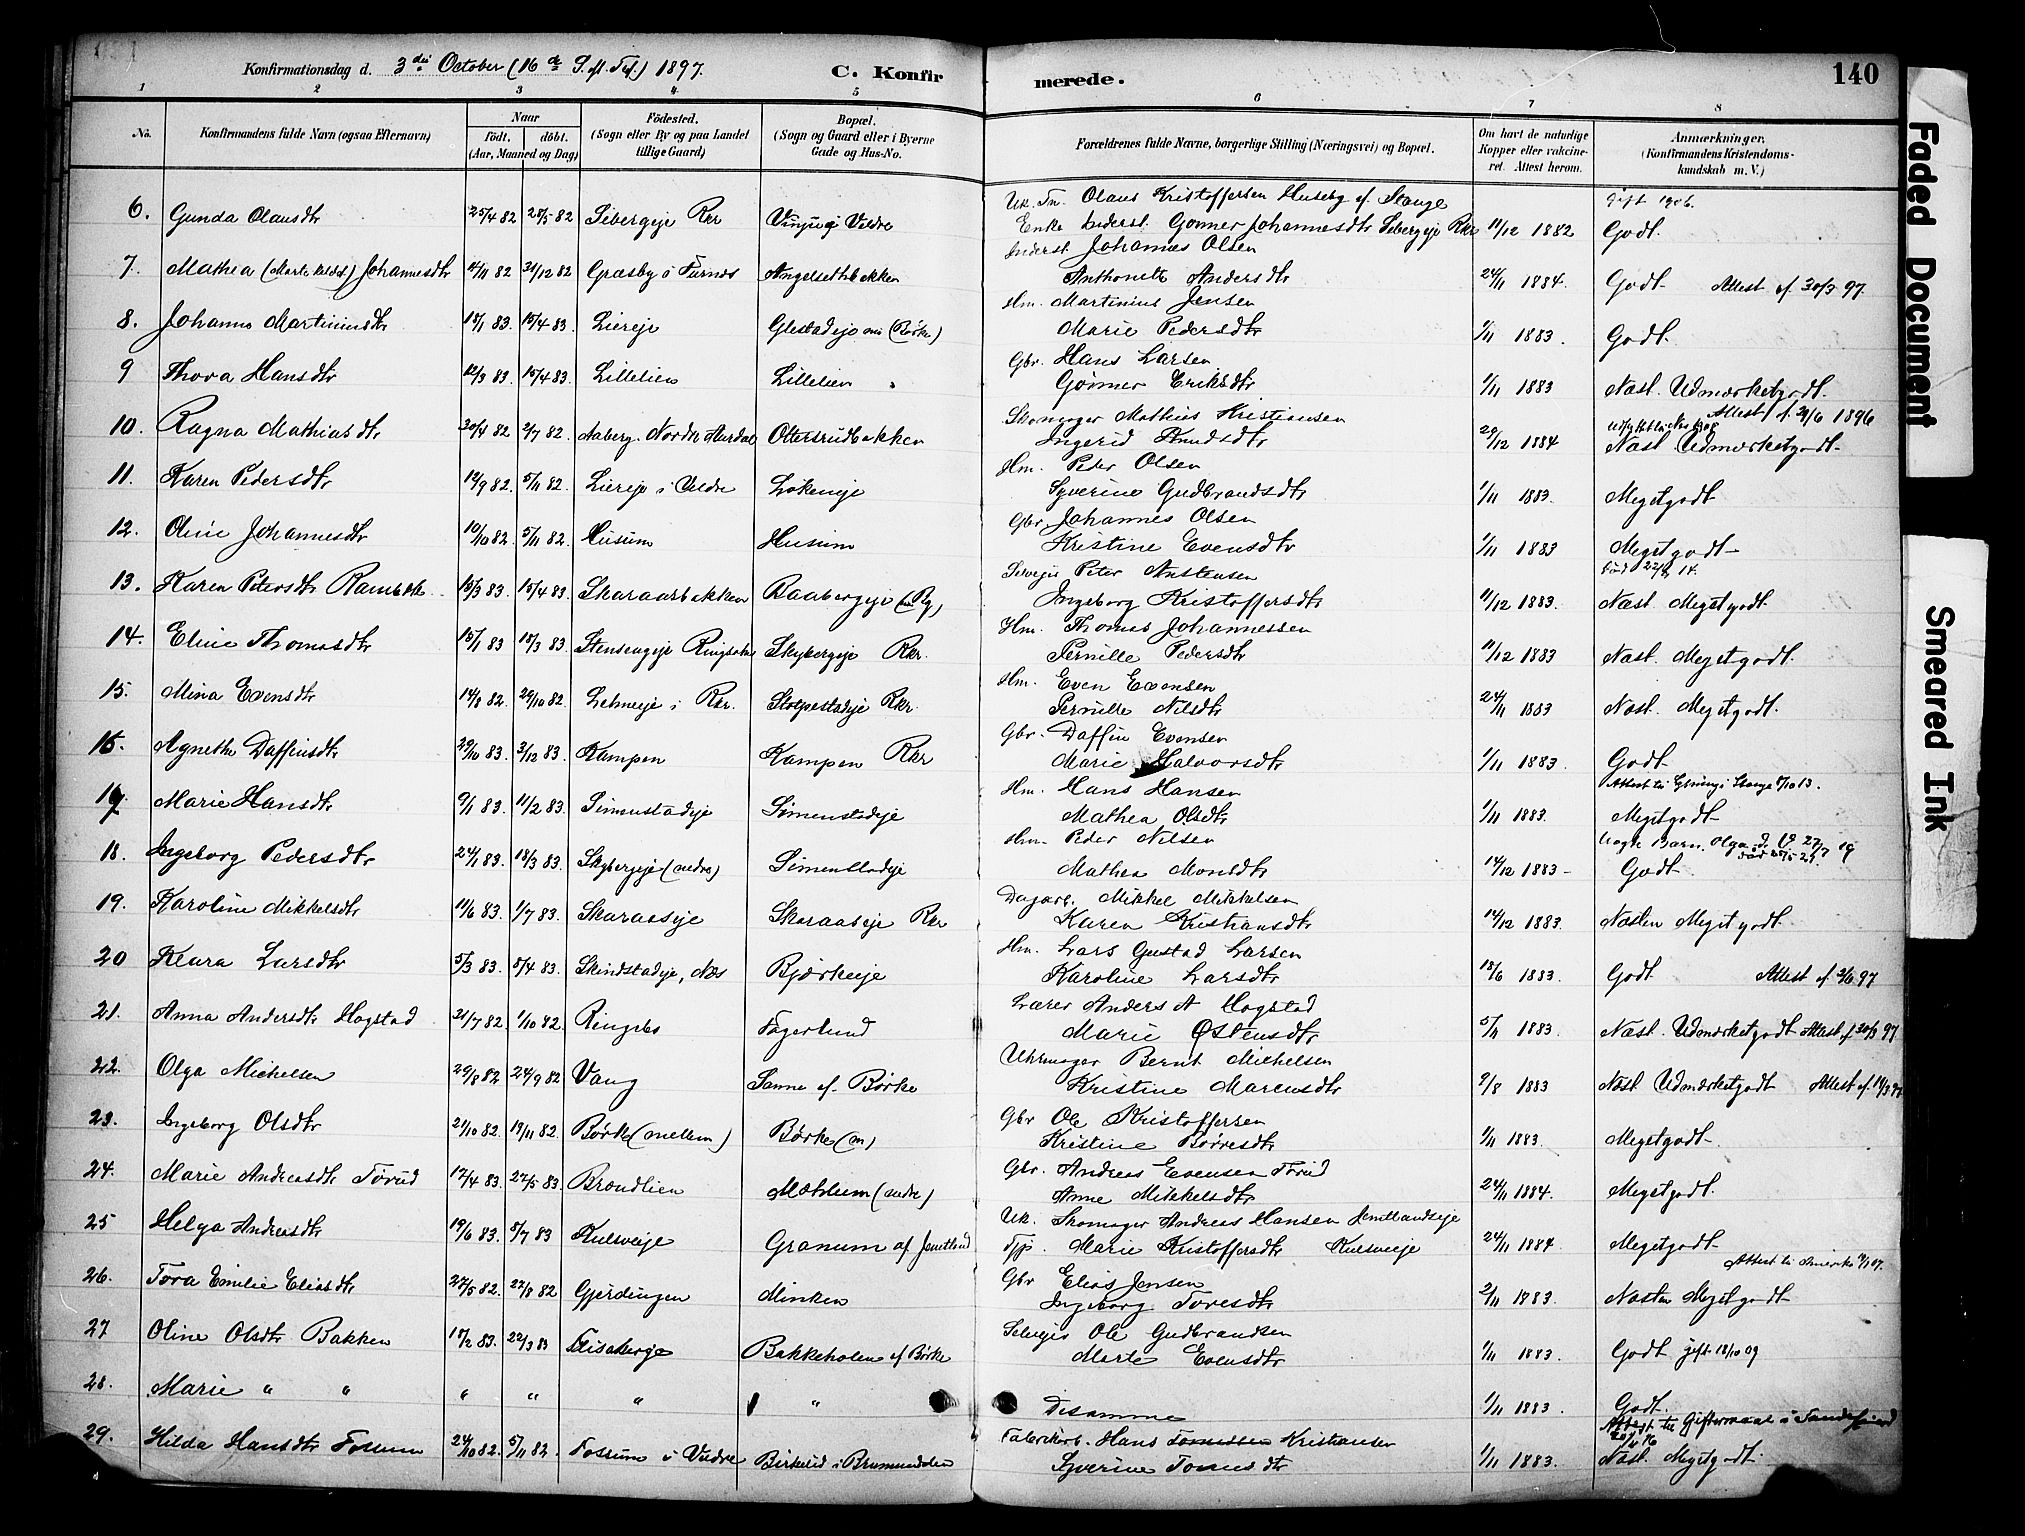 Konfirmationsdag d. 3die October (16de S. ef. Tref.) 1897. C. Konfir merede. 140
1 2 3 4 5 6 7 8
No. Konfirmandens fulde Navn (ogsaa Efternavn) Naar født. døbt. (Aar, Maaned og Dag) Fødested. (Sogn eller By og paa Landet tillige Gaard) Bopæl. (Sogn og Gaard eller i Byerne Gade og Hus-No. Forældrenes fulde Navne, borgerlige Stilling (Næringsvei) og Bopæl. Om havt de naturlige Kopper eller vakcineret. Attest herom. Anmærkninger. (Konfirmandens Kristendomskundskab m. V.)
Uk. Olaus Kristoffersen Huseby af Stange gift 1906.
6. Gunda Olausdtr 25/4 82 28/5 82 Sibergeje Rkr i Veldre Enke Inderst. Gonner Johannesdtr Sebergeje Rkr 11/12 1882 Godt.
Inderst. Johannes Olsen
7. Mathea Johannesdtr 12/11 82 31/12 82 Græsby i Furnes Angelsethbakken Anthonette Andersdtr 24/11 1884. Godt. Attest af 30/3 97.
Hm. Martinius Jensen
8. Johanne Martiniusdtr 18/1 83. 15/4 83. Liereje Glestadeje (Børke) Marie Pedersdtr 1/11 1883. Godt.
Gbr. Hans Larsen
9 Thora Hansdtr 12/3 83. 15/4 83. Lillelien Lillelien Gønner Eriksdtr 1/11 1883 Næst. Udmærketgodt.
Skomager Mathias Kristiansen Attest f. 29/6 1896
10. Ragna Mathiasdtr 30/4 82 2/7 82. Aaberg. Nordre Aurdal Ottersrudbakken Ingerid Knudsdtr 29/12 1884 Næst Udmærketgodt.
Hm. Peder Olsen
11. Karen Pedersdtr 19/9 82. 5/11 82. Liereje i Veldre Løkeneje Syverine Gudbrandsdtr 1/11 1883. Megetgodt
Gbr. Johannes Olsen
12. Oline Johannesdtr 10/10 82. 5/11 82. Husum Husum Kristine Evensdtr 1/11 1883 Megetgodt
Selvejer Peter Austensen
13. Karen Petersdtr 15/3 83 15/4 83. Skaraarbakken Baabergeje (Rg) Ingeborg Kristoffersdtr 11/12 1883. Næst Megetgodt.
Hm. Thomas Johannessen
14. Eline Thomasdtr 15/1 83 18/3 83 Stensengeje Ringsaker Skybergeje Rkr. Pernille Pedersdtr 11/12 1883 Næst. Megetgodt.
Hm. Even Evensen
15. Mina Evensdtr 14/8 82. 29/10 82 Lehneeje i Rkr. Stolpestadeje Rkr. Pernille Nilsdtr 24/11 1883 Næst. Megetgodt.
Gbr. Daffin Evensen
16. Agnethe Daffinsdtr 29/10 83 3/12 83. Kampen Kampen Rkr Marie Halvorsdtr 1/11 1883. Godt.
Hm. Hans Hansen Attest til i Stange 5/10 13.
17. Marie Hansdtr 9/1 83. 11/2 83. Simenstadeje Simenstadeje Mathea Olsdtr 1/11 1883. Megetgodt
Hm. Peder Nilsen Uægte Barn Olga d. 27/7 09
18. Ingeborg Pedersdtr 24/1 83. 18/3 83. Skybergeje (nedre) Simenstadeje Mathea Monsdtr 14/12 1883 Godt.
Dagarb. Mikkel Mikkelsen
19. Karoline Mikkelsdtr 11/6 83. 1/7 83. Skaraaseje Skaraaseje Rkr Karen Kristiansdtr 14/12 1883. Næsten Megetgodt.
Hm. Lars Gustad Larsen
20 Klara Larsdtr 5/3 83. 8/4 83. Skindstadeje, Næs Bjørkeeje Karoline Larsdtr 18/6 1883. Godt Attest af 2/6 97
Lærer Anders A Hogstad
21. Anna Andersdtr Hogstad 21/7 82. 1/10 82. Ringebo Fagerlund Marie Østensdtr 5/11 1883. Næst. Udmærketgodt Attest af 30/3 97
Uhrmager Bernt Michelsen
22. Olga Michelsen 29/8 82 24/9 82 Vang Sanne af Børke Kristine Marensdtr 9/8 1883 Næst Udmærketgodt Attest af
Gbr Ole Kristoffersen
23. Ingeborg Olsdtr 21/10 82. 19/11 82. Børke (mellem) Børke (m) Kristine Børresdtr 1/11 1883. Megetgodt
Gbr. Andreas Evensen Torud
24. Marie Andreasdtr Torud 17/4 83. 27/5 83. Brændlien Mæhlum (nedre) Anne Mikkelsdtr 24/11 1884. Megetgodt.
Uk. Skomager Andreas Hansen Jemtlandseje
25 Helga Andreasdtr 19/6 83. 8/7 83 Kulsveeje Granum af Jemtlund Tjp. Marie Kristoffersdtr Kulsveeje 24/11 1884 Megetgodt
Gbr Elias Jensen Attest til Amerika
26. Tora Emilie Eliasdtr 27/5 82. 27/8 82 Gjerdingen Minken Ingeborg Toresdtr 2/11 1883. Næsten Megetgodt
Selvejer Ole Gudbrandsen
27 Oline Olsdtr Bakken 18/2 83. 22/3 83 Flisabergeje Bakkeholen af Børke Marte Evensdtr 1/11 1883. Godt gift 18/10 09
28. Marie " " " " " " Desamme 1/11 1883. Godt.
Fabrikarb. Hans Kristiansen Attest til Giftermaal i Sandefjord
29. Hilda Hansdtr Fossum 24/10 82. 5/11 82. Fossum i Veldre Birkelid i Brumunddalen Syverine Tomasdtr 1/11 1883. Næst. Megetgodt.
Faded Document
Smeared Ink